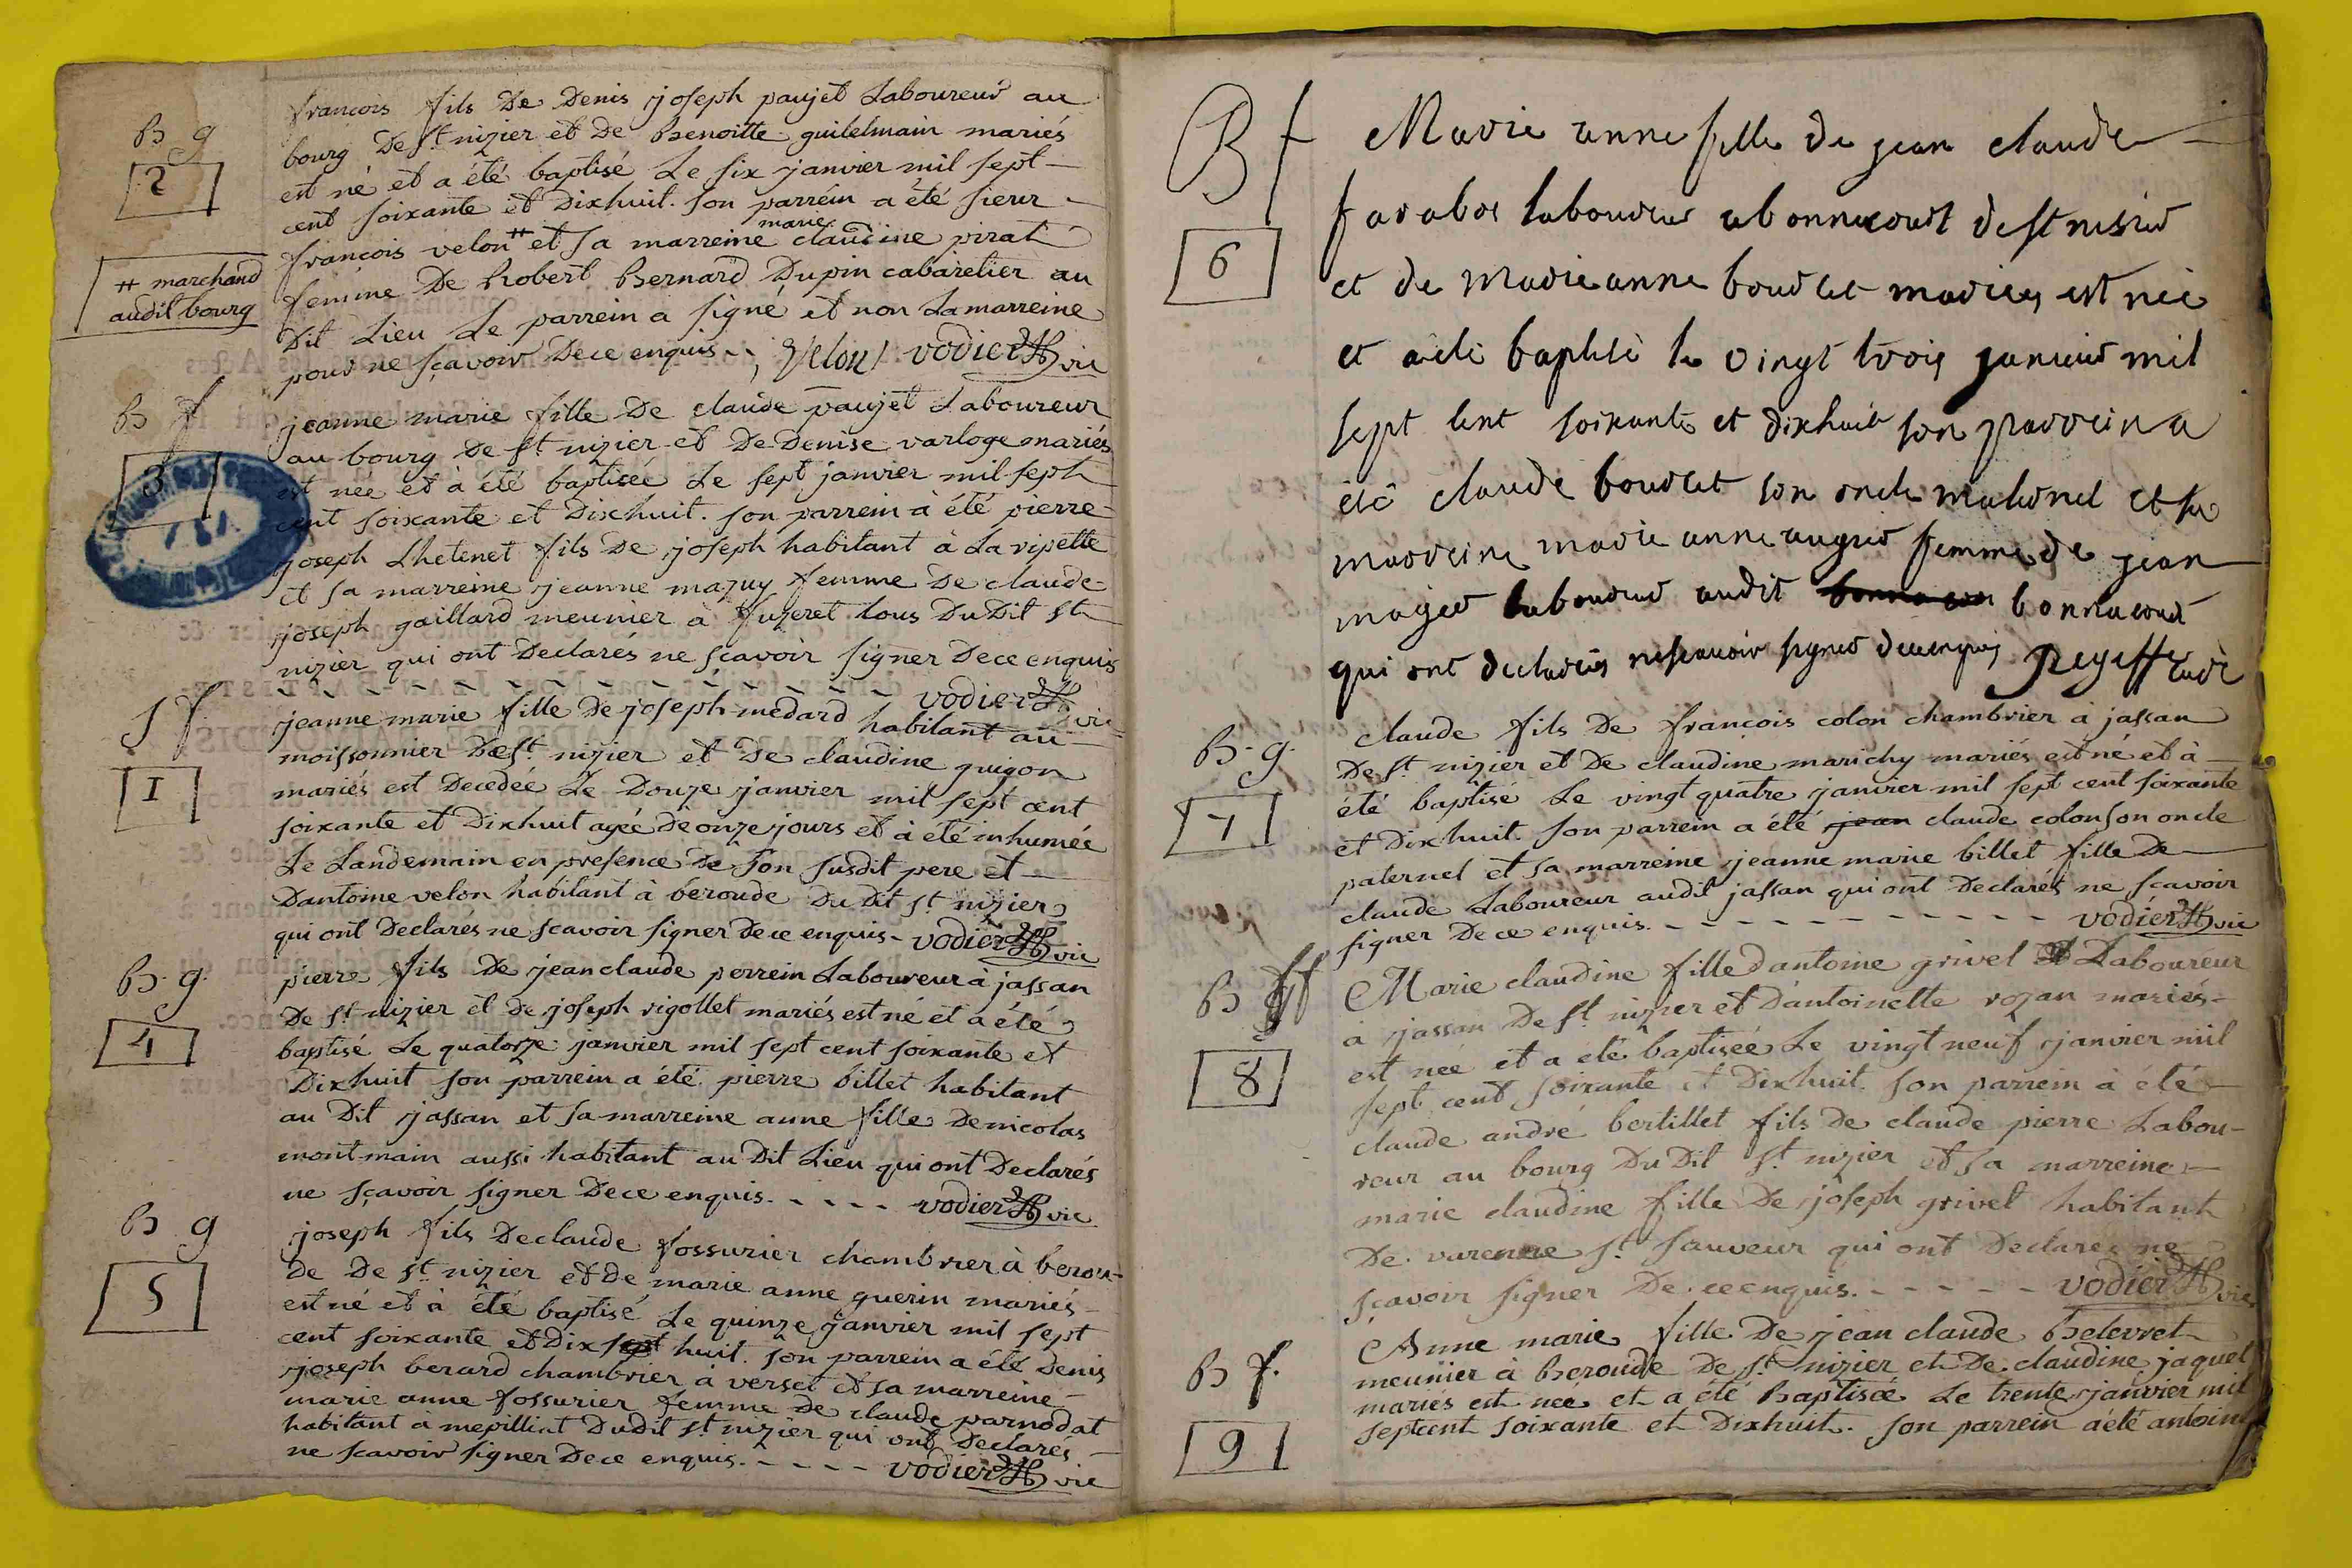 B g
2
françois fils De Denis joseph paujet Laboureur au
bourg De St nizier et De Benoitte guilelmain mariés
est né et a été baptisé Le six janvier mil sept
cent soixante et Dixhuit. son parrein a été sieur
marie
françois velon # et sa marreine claudine pirat
femme De Robert Bernard Dupin cabaretier au
Dit Lieu Le parrein a signé et non La marreine
pour ne sçavoir Dece enquis - - Velon vodier vic
# marchand
audit bourg
B f
3
jeanne marie fille De claude paujet Laboureur
au bourg De St nizier et De Denise varloge mariés
est née et à été baptisée Le sept janvier mil sept
cent soixante et Dixhuit. son parrein à été pierre
joseph Lhetenet fils De joseph habitant à La ripette
et sa marreine jeanne mazuy femme De claude
joseph gaillard meunier à fuzeret tous DuDit St
nizier qui ont Declarés ne sçavoir signer Dece enquis
- - - - - - - - - - - vodier vic
S f
1
jeanne marie fille De joseph medard habitant au
moissonnier De St nizier et De claudine guigon
mariés est Decedée Le Douze janvier mil sept cent
soixante et Dixhuit agée De onze jours et à été inhumée
Le Landemain en presence De son susdit pere et
Dantoine velon habitant à beroude Du Dit St nizier
qui ont Declarés ne scavoir signer Dece enquis - vodier vic
B. g.
4
pierre fils De jean claude perrein Laboureur à jassan
De St nizier et De joseph rigollet mariés est né et a été
baptisé Le quatorze janvier mil sept cent soixante et
Dixhuit son parrein a été pierre billet habitant
au Dit jassan et sa marreine anne fille De nicolas
montmain aussi habitant au Dit Lieu qui ont Declarés
ne sçavoir signer Dece enquis. - - - - vodier vic
B g
5
joseph fils De claude fossurier chambrier à berou-
de De St nizier et de marie anne guerin mariés
est né et à été baptisé Le quinze janvier mil sept
cent soixante et Dix sept huit. son parrein a été Denis
joseph berard chambrier à verset et sa marreine
marie anne fossurier femme De claude parnodat
habitant à mepilliat DuDit St nizier qui ont Declarés
ne scavoir signer Dece enquis. - - - - vodier vic
B f
6
Marie anne fille de jean claude
favabos laboureur a bonnacourt de st nisier
et de Marie anne bourlet mariés est née
et a été baptisé le vingt trois janvier mil
sept cent soixante et dixhuit son parrein a
été claude bourlet son oncle maternel et sa
marreine marie anne auger femme de jean
moyer laboureur audit bonnacourt
qui ont declarés ne scavoir signer dece enquis curé
B. g.
7
claude fils De françois colon chambrier à jassan
De St nizier et De claudine marichy mariés est né et à
été baptisé Le vingt quatre janvier mil sept cent soixante
et Dixhuit. son parrein a été jean claude colon son oncle
paternel et sa marreine jeanne marie billet fille De
claude Laboureur audit jassan qui ont Declarés ne scavoir
signer De ce enquis. - - - - - - - - - vodier vic
B f
8
Marie claudine fille d'antoine grivel Laboureur
à jassan De St nizier et D'antoinette rozan mariés
est née et a été baptisée Le vingt neuf janvier mil
sept cent soixante et Dixhuit. son parrein à été
claude andré bertillet fils De claude pierre Labou-
reur au bourg Du Dit St nizier et sa marreine
marie claudine fille De joseph grivel habitant
De varenne St Sauveur qui ont Declarés ne
sçavoir signer De ce enquis. - - - - - vodier vic
B f.
9
Anne marie fille De jean claude Belevret
meunier à Beroude De St nizier et De claudine jaquet
mariés est née et a été Baptisée Le trente janvier mil
sept cent soixante et Dixhuit. son parrein a été antoine